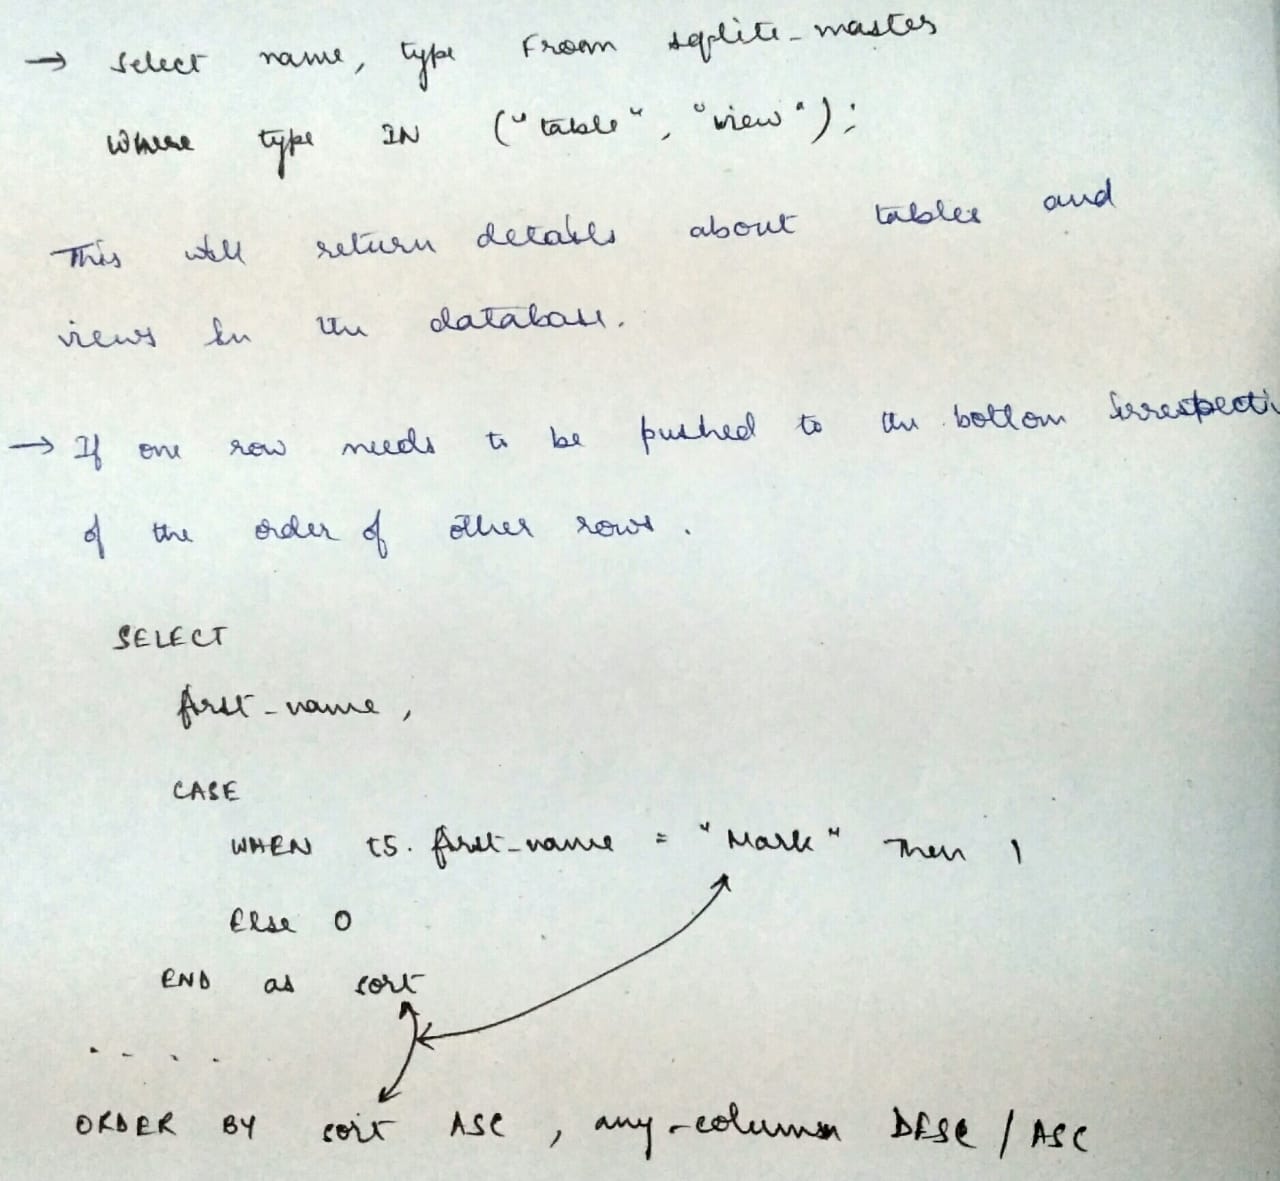 → Select name, type From sqlite_master
Where type IN ("table", "view");
This will return details about tables and
views in the database.
→ If one row needs to be pushed to the bottom irrespecti
of the order of other rows.
SELECT
first_name,
CASE
WHEN t5.first_name = "Mark" Then 1
Else 0
END as sort
.....
ORDER BY sort ASC, any_column DESC / ASC